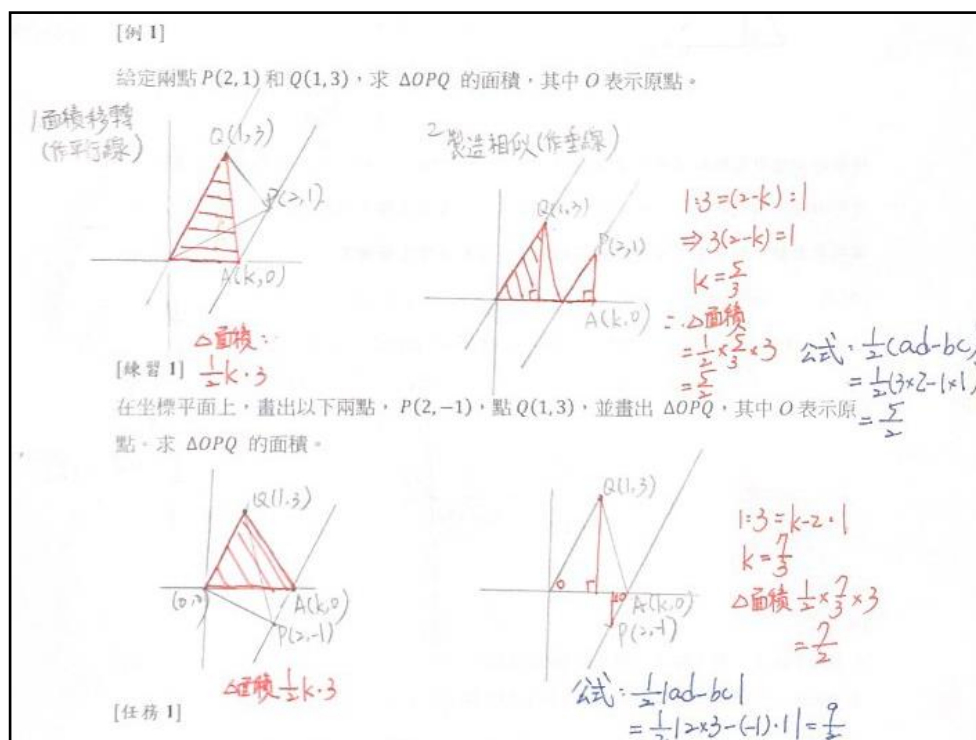 [例 1]
給定兩點 P(2,1) 和 Q(1,3)，求 ΔOPQ 的面積，其中 O 表示原點。
1面積移轉
(作平行線)
Q(1,3)
P(2,1)
A(k,0)
△面積：
1/2 k·3
2製造相似(作垂線)
Q(1,3)
P(2,1)
A(k,0)
1:3=(2-k):1
⇒3(2-k)=1
k=5/3
∴△面積
=1/2×5/3×3
=5/2
公式：1/2(ad-bc)
=1/2(3×2-1×1)
=5/2
[練習 1]
在坐標平面上，畫出以下兩點，P(2,−1)，點 Q(1,3)，並畫出 ΔOPQ，其中 O 表示原
點。求 ΔOPQ 的面積。
Q(1,3)
(0,0)
A(k,0)
P(2,-1)
△面積 1/2 k·3
Q(1,3)
A(k,0)
P(2,-1)
1:3=k-2:1
k=7/3
△面積 1/2×7/3×3
=7/2
公式：1/2|ad-bc|
=1/2|2×3-(-1)·1|=9/2
[任務 1]